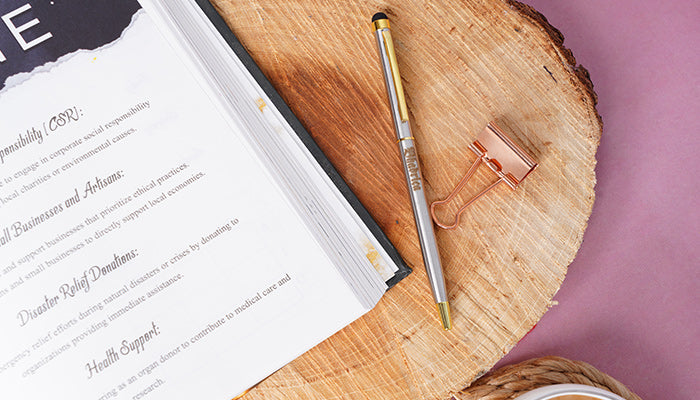 NE
ponsibility [CSR]:
e to engage in corporate social responsibility
local charities or environmental causes.
all Businesses and Artisans:
and support businesses that prioritize ethical practices.
ns and small businesses to directly support local economies.
Disaster Relief Donations:
ergency relief efforts during natural disasters or crises by donating to
organizations providing immediate assistance.
Health Support:
ering as an organ donor to contribute to medical care and
research.